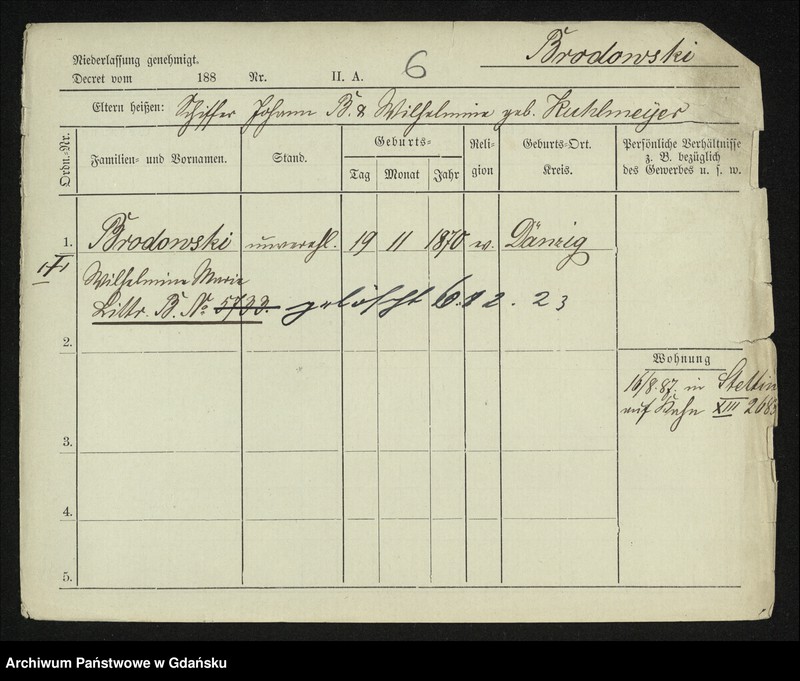 Brodowski
Niederlassung genehmigt.
Decret vom 188 Nr. II. A. 6
Eltern heißen: Schiffer Johann B. & Wilhelmine geb. Kuhlmeyer
Ordn.-Nr. Familien- und Vornamen. Stand. Geburts- Tag Monat Jahr Religion Geburts-Ort. Kreis. Persönliche Verhältnisse z. B. bezüglich des Gewerbes u. s. w.
1. Brodowski unverehl. 19 11 1870 ev. Danzig
Wilhelmine Marie
Littr. B. No 5733. gelöscht 6.12.23
2.
Wohnung
16/8.87. in Stettin
auf Kahn XIII 2683
3.
4.
5.
Archiwum Państwowe w Gdańsku